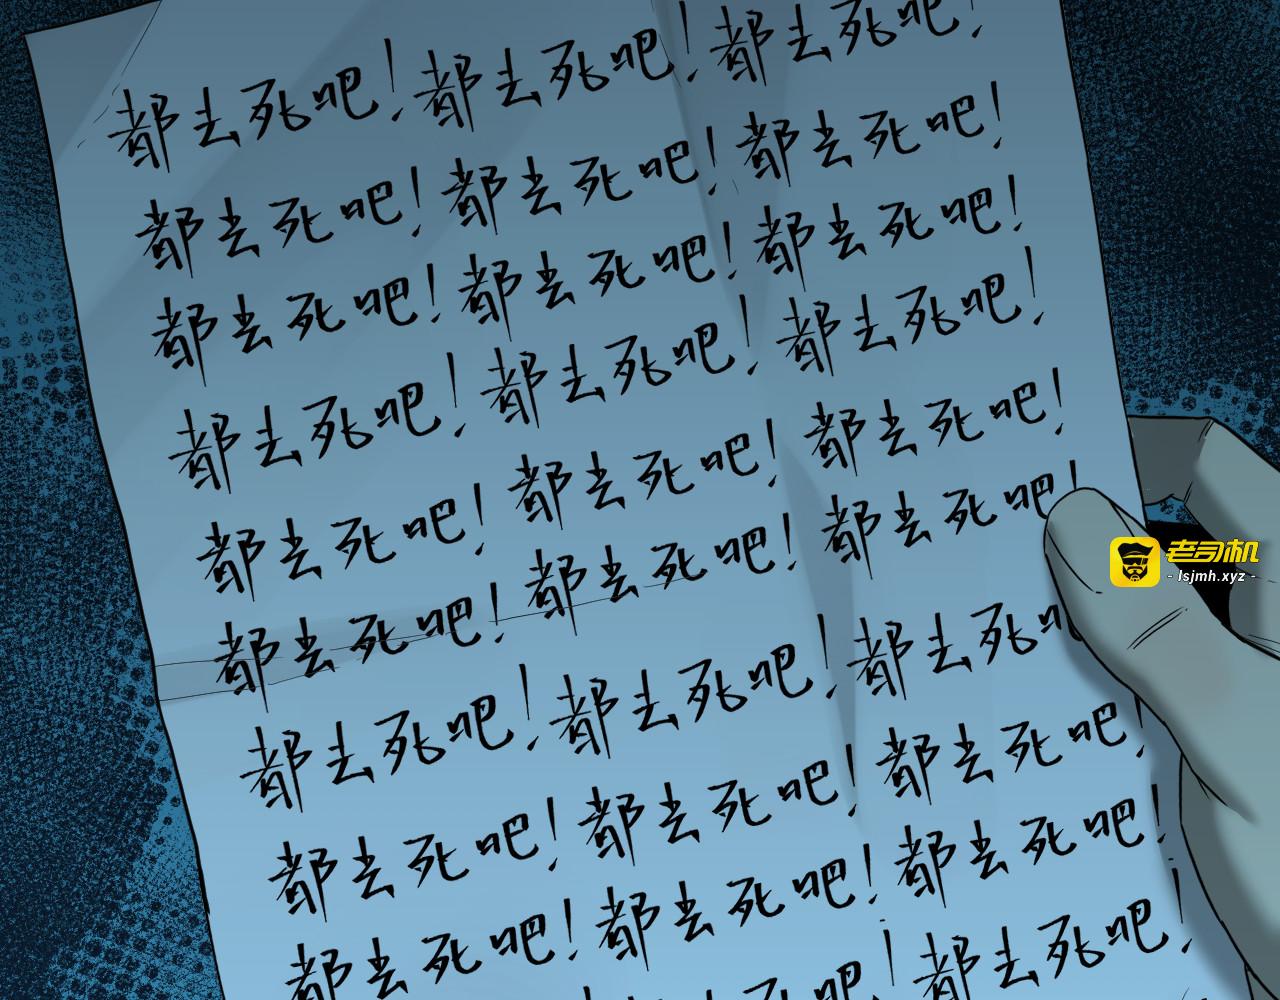 都去死吧!都去死吧!都去死吧!
都去死吧!都去死吧!都去死吧!
都去死吧!都去死吧!都去死吧!
都去死吧!都去死吧!都去死吧!
都去死吧!都去死吧!都去死吧!
都去死吧!都去死吧!都去死吧!
都去死吧!都去死吧!都去死
都去死吧!都去死吧!都去死吧!
都去死吧!都去死吧!都去死吧!
死吧!都去死吧!
老司机
- lsjmh.xyz -